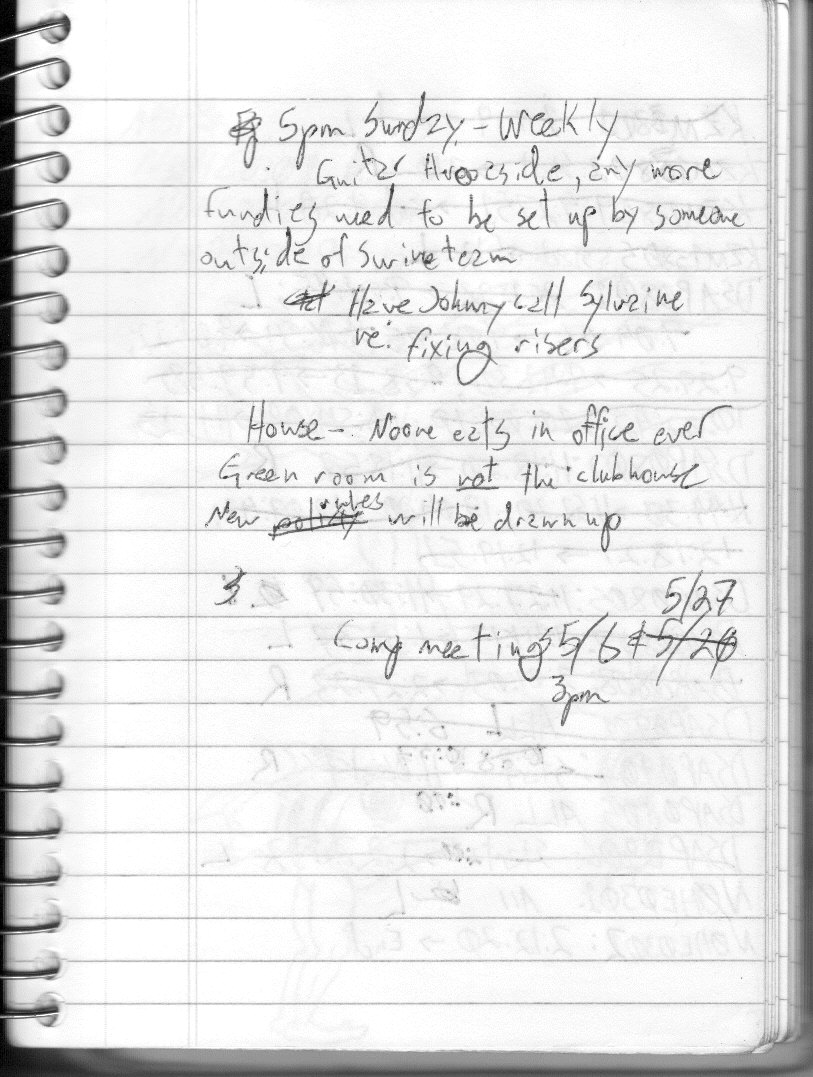 5pm Sunday - Weekly
Guitar Hero aside, any more
fundies need to be set up by someone
outside of Swine team
Have Johnny call Sylvaine
re: fixing risers
House - Noone eats in office ever
Green room is not the clubhouse
rules
New policy will be drawn up
5/27
Comp meetings 5/6 & 5/20
3pm